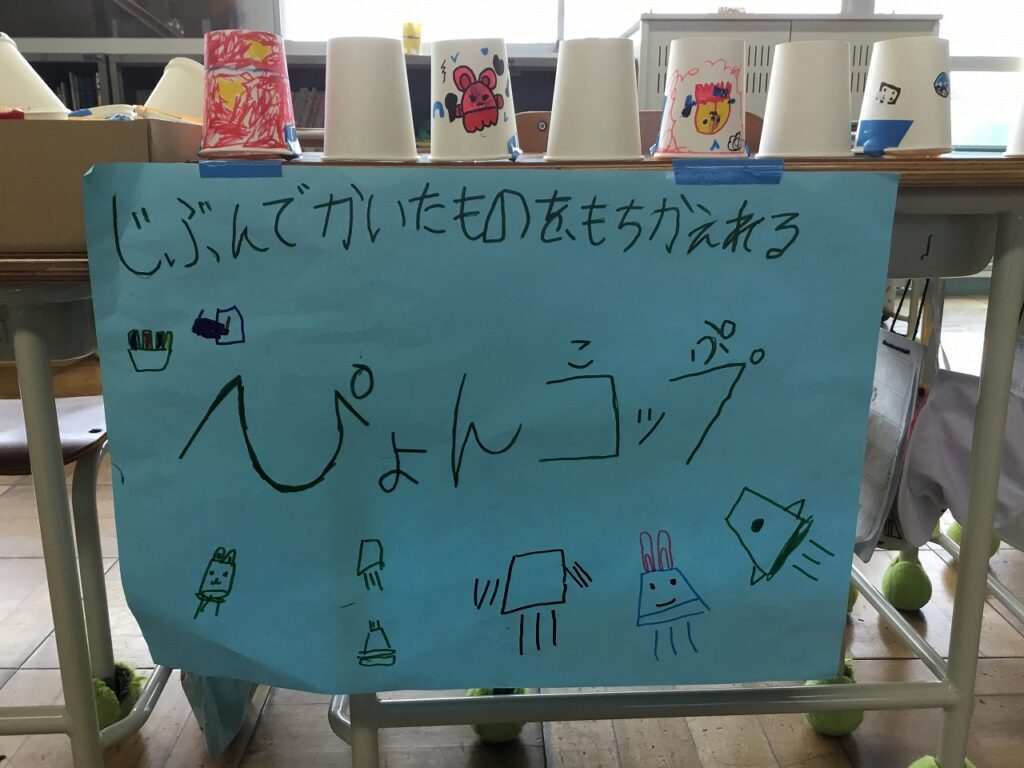 じぶんでかいたものをもちかえれる
ぴょんコップ
こ ぷ